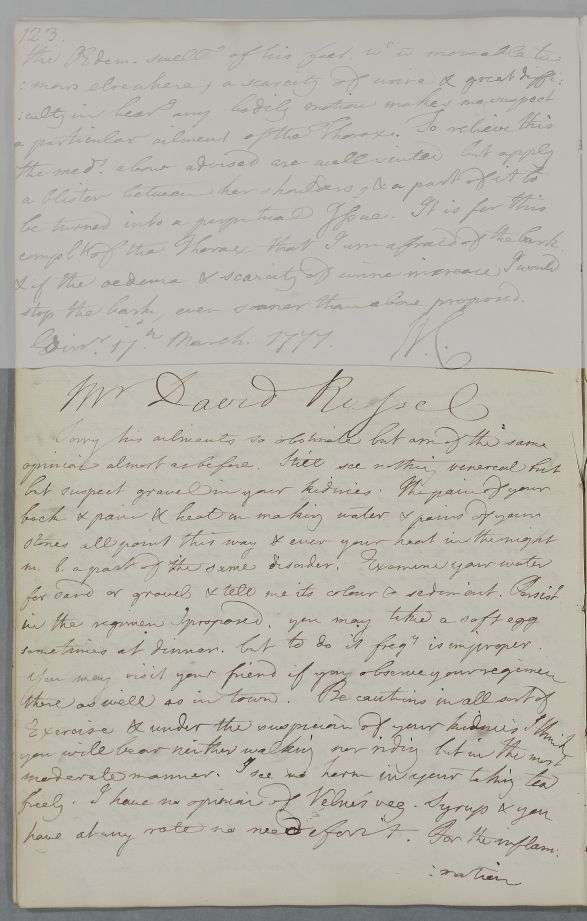 123.
the Œdem. swellg of his feet wt. no moveable tu:
:mors elsewhere, a scarcity of urine & great diffi:
:culty in bearg any bodily motion makes me suspect
a particular ailment of the Thorax. To relieve this
the meds. above advised are well suited but apply
a blister between her shoulders, & a part of it to
be turned into a perpetual Issue. It is for this
complt. of the Thorax that I am afraid of the bark
& if the oedema & scarcity of urine increase I would
stop the bark, even sooner than above proposed.
Edinr. 17th March. 1777. W.C
Mr David Russel
Sorry his ailments so obstinate but am of the same
opinion almost as before. Still see nothing venereal but
but suspect gravel in your kidnies. The pain of your
back & pain & heat in making water & pains of your
stones all point this way & even your heat in the night
m. b a part of the same disorder. Examine your water
for sand or gravel & tell me its colour & sediment. Persist
in the regimen I proposed. you may take a soft egg
sometimes at dinner. but to do it freqy is improper.
You may visit your friend if you observe your regimen
there as well as in town. Be cautious in all sort of
Exercise & under the suspicion of your kidnies I think
you will bear neither walking nor riding but in the most
moderate manner. I see no harm in your taking tea
freely. I have no opinion of Velno's veg. Syrup & you
have at any rate no need for it. For the inflam:
:mation